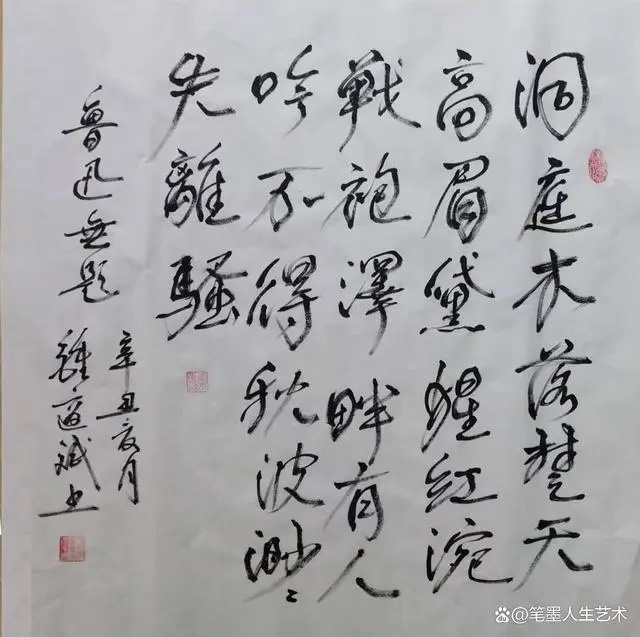 洞庭木落楚天
高眉黛猩紅涴
戰袍澤畔有人
吟不得秋波渺〻
失離騷
魯迅無題
辛丑亥月
鍾道斌书
@笔墨人生艺术